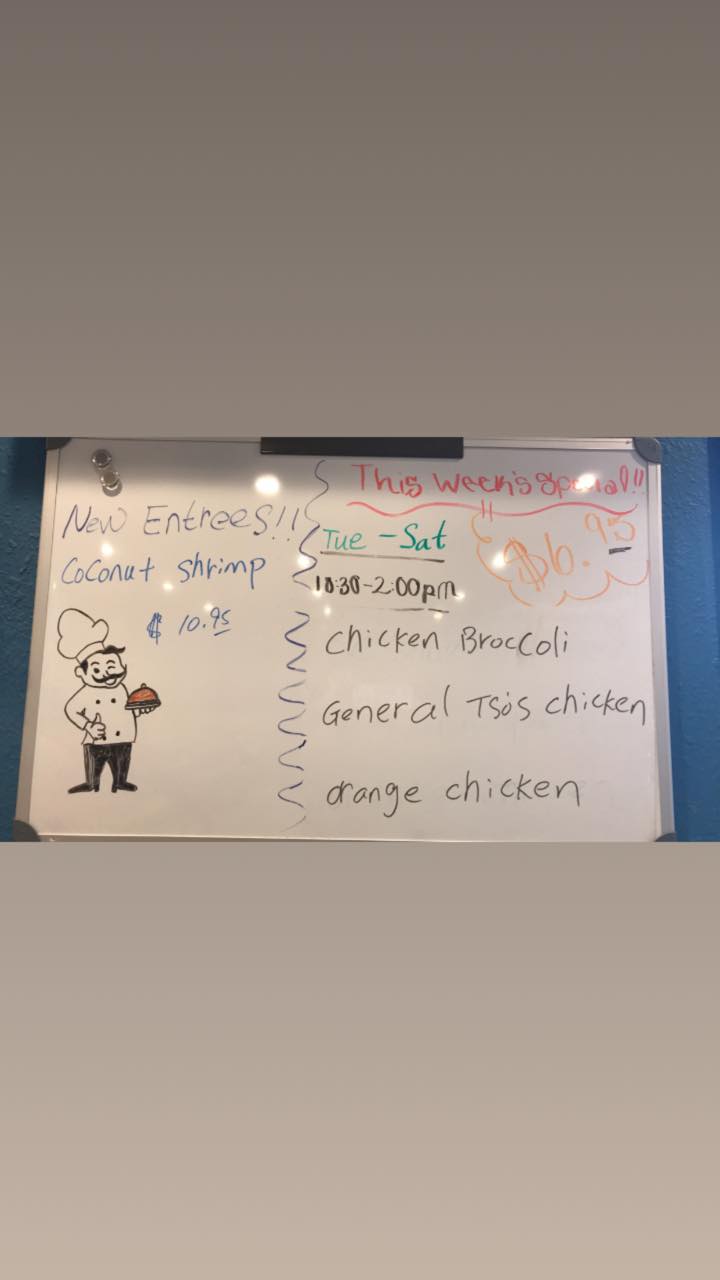 New Entrees!!
Coconut shrimp
$ 10.95
This Week's Special!!
Tue - Sat
$6.95
10:30-2:00pm
Chicken Broccoli
General Tso's chicken
orange chicken